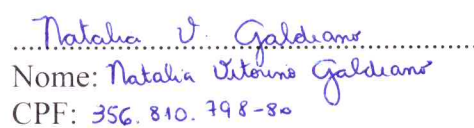 Natalia V. Galdiano
Nome: Natalia Vitorino Galdiano
CPF: 356.810.798-80